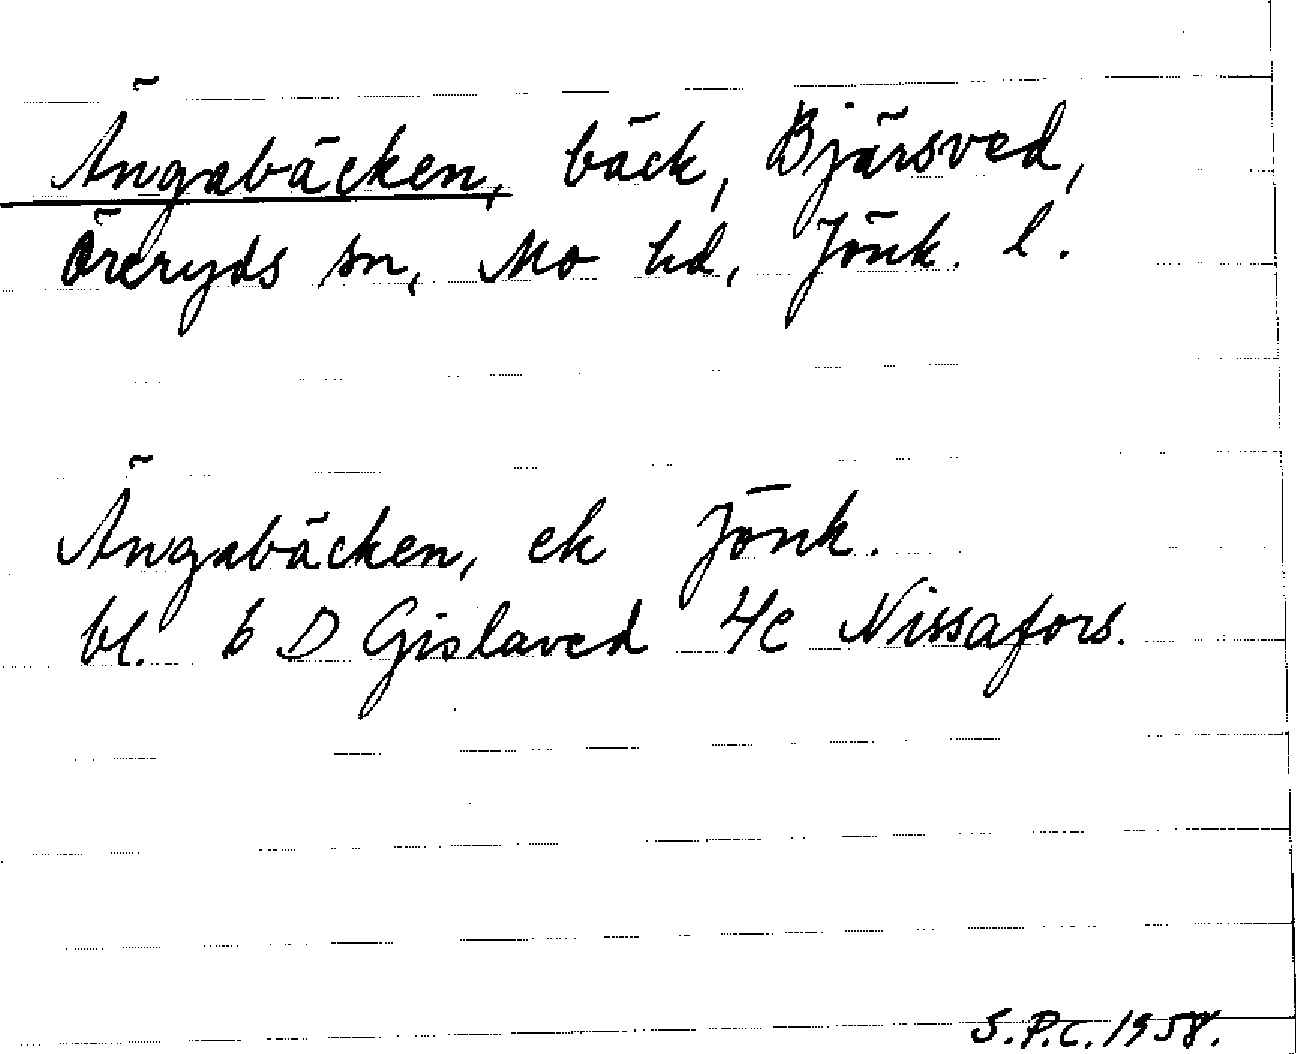 Ängabäcken, bäck, Bjärsved,
Öreryds sn, Mo hd, Jönk. l.
Ängabäcken, ek Jönk.
bl. 6 D Gislaved 4e Nissafors.
S.P.C. 1958.